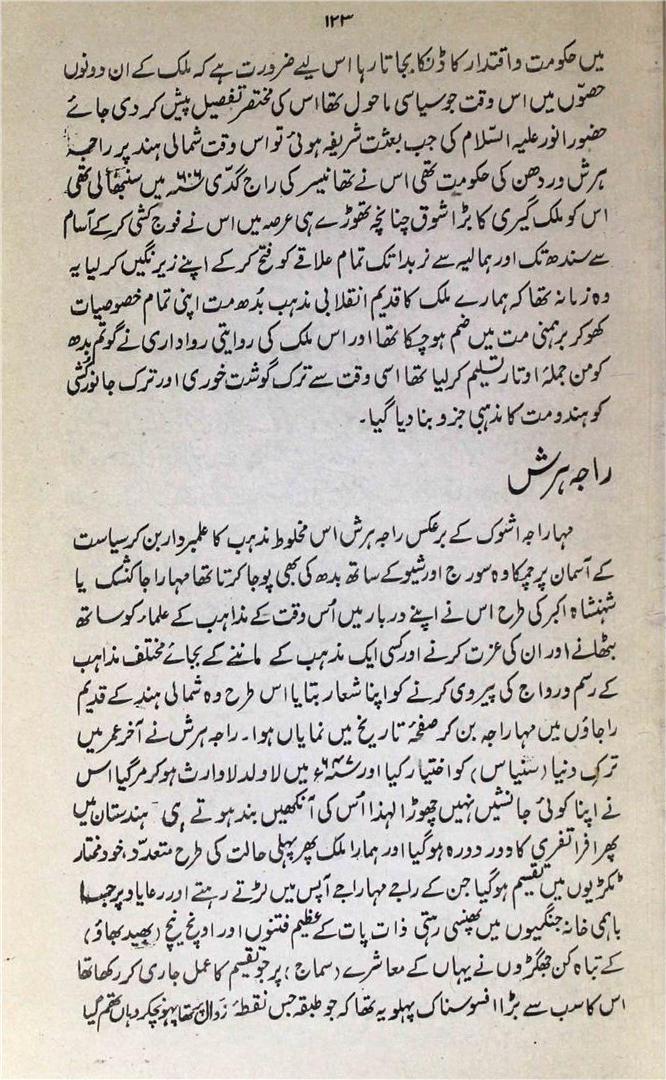 ۱۲۳
میں حکومت و اقتدار کا ڈنکا بجاتا رہا اس لیے ضرورت ہے کہ ملک کے ان دونوں
حصّوں میں اس وقت جو سیاسی ماحول تھا اس کی مختصر تفصیل پیش کر دی جائے
حضور انور علیہ السّلام کی جب بعثت شریفہ ہوئی تو اس وقت شمالی ہند پر راجہ
ہرش وردھن کی حکومت تھی اس نے تھانیسر کی راج گدّی ۶۰۶ء میں سنبھالی تھی
اس کو ملک گیری کا بڑا شوق چنانچہ تھوڑے ہی عرصہ میں اس نے فوج کشی کرکے آسام
سے سندھ تک اور ہمالیہ سے نربدا تک تمام علاقے کو فتح کرکے اپنے زیرنگیں کر لیا یہ
وہ زمانہ تھا کہ ہمارے ملک کا قدیم انقلابی مذہب بُدھ مت اپنی تمام خصوصیات
کھو کر برہمنی مت میں ضم ہو چکا تھا اور اس ملک کی روایتی رواداری نے گوتم بدھ
کو من جملۂ اوتار تسلیم کر لیا تھا اسی وقت سے ترک گوشت خوری اور ترک جانور کشی
کو ہندو مت کا مذہبی جزو بنا دیا گیا۔
راجہ ہرش
مہاراجہ اشوک کے برعکس راجہ ہرش اس مخلوط مذہب کا علمبردار بن کر سیاست
کے آسمان پر چمکا وہ سورج اور شیو کے ساتھ بدھ کی بھی پوجا کرتا تھا مہاراجا کنشک یا
شہنشاہ اکبر کی طرح اس نے اپنے دربار میں اُس وقت کے مذاہب کے علماء کو ساتھ
بٹھانے اور ان کی عزت کرنے اور کسی ایک مذہب کے ماننے کے بجائے مختلف مذاہب
کے رسم و رواج کی پیروی کرنے کو اپنا شعار بتایا اس طرح وہ شمالی ہند کے قدیم
راجاؤں میں مہاراجہ بن کر صفحۂ تاریخ میں نمایاں ہوا۔ راجہ ہرش نے آخر عمر میں
ترک دنیا (سنیاس) کو اختیار کیا اور ۶۴۷ء میں لاولد لاوارث ہو کر مر گیا اس
نے اپنا کوئی جانشیں نہیں چھوڑا لہذا اُس کی آنکھیں بند ہوتے ہی ہندستان میں
پھر افراتفری کا دور دورہ ہو گیا اور ہمارا ملک پھر پہلی حالت کی طرح متعدّد، خود مختار
ٹکڑیوں میں تقسیم ہو گیا جن کے راجے مہاراجے آپس میں لڑتے رہتے اور رعایا و پرجا
باہمی خانہ جنگیوں میں پھنسی رہتی ذات پات کے عظیم فتنوں اور اونچ نیچ (بھید بھاؤ)
کے تباہ کن جھگڑوں نے یہاں کے معاشرے (سماج) پر جو تقسیم کا عمل جاری کر رکھا تھا
اس کا سب سے بڑا افسوسناک پہلو یہ تھا کہ جو طبقہ جس نقطۂ زوال پہ تھا پہونچکر وہاں تھم گیا